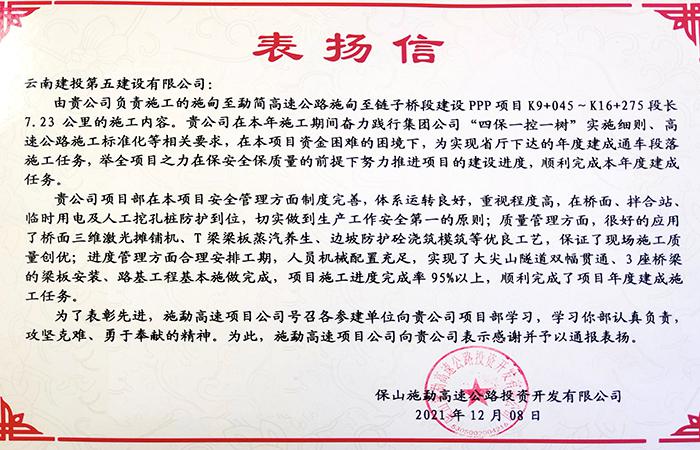 表扬信
云南建投第五建设有限公司：
由贵公司负责施工的施甸至勐简高速公路施甸至链子桥段建设 PPP 项目 K9+045～K16+275 段长
7.23 公里的施工内容。贵公司在本年施工期间奋力践行集团公司“四保一控一树”实施细则、高
速公路施工标准化等相关要求，在本项目资金困难的困境下，为实现省厅下达的年度建成通车段落
施工任务，举全项目之力在保安全保质量的前提下努力推进项目的建设进度，顺利完成本年度建成
任务。
贵公司项目部在本项目安全管理方面制度完善，体系运转良好，重视程度高，在桥面、拌合站、
临时用电及人工挖孔桩防护到位，切实做到生产工作安全第一的原则；质量管理方面，很好的应用
了桥面三维激光摊铺机、T 梁梁板蒸汽养生、边坡防护砼浇筑模筑等优良工艺，保证了现场施工质
量创优；进度管理方面合理安排工期，人员机械配置充足，实现了大尖山隧道双幅贯通、3 座桥梁
的梁板安装、路基工程基本施做完成，项目施工进度完成率 95%以上，顺利完成了项目年度建成施
工任务。
为了表彰先进，施勐高速项目公司号召各参建单位向贵公司项目部学习，学习你部认真负责，
攻坚克难、勇于奉献的精神。为此，施勐高速项目公司向贵公司表示感谢并予以通报表扬。
保山施勐高速公路投资开发有限公司
2021 年 12 月 08 日